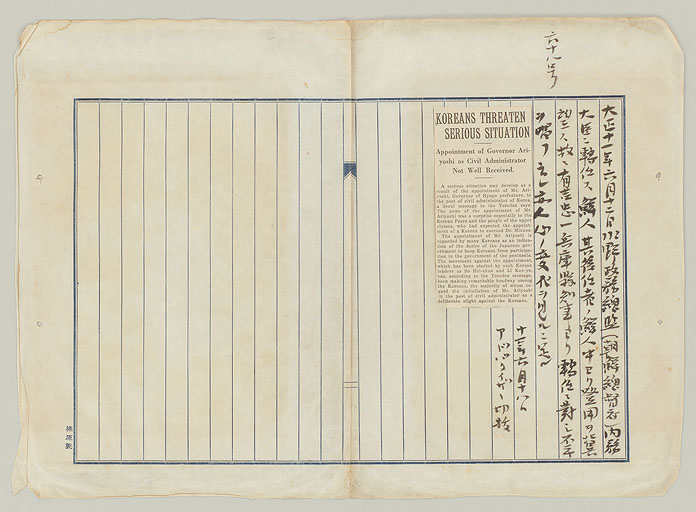 六十八号
大正十一年六月十二日水野政務総監(朝鮮総督府)内務
大臣ニ転任ス 鮮人其後任者ノ鮮人中ヨリ登用ヲ冀
故ニ有吉忠一兵庫県知事ヨリ転任ニ対シ不平
KOREANS THREATEN
SERIOUS SITUATION
Appointment of Governor Ari-
yoshi as Civil Administrator
Not Well Received.
A serious situation may develop as a
result of the appointment of Mr. Ari-
yoshi, Governor of Hyogo prefecture, to
the post of civil administrator of Korea,
a Seoul message to the Yorodzu says.
The news of the appointment of Mr.
Ariyoshi was a surprise especially to the
Korean Peers and the people of the upper
classes, who had expected the appoint-
ment of a Korean to succeed Dr. Mizuno.
The appointment of Mr. Ariyoshi is
regarded by many Koreans as an indica-
tion of the desire of the Japanese gov-
ernment to keep Koreans from participa-
tion in the government of the peninsula.
The movement against the appointment,
which has been started by such Korean
leaders as
according to the Yorodzu message,
been making remarkable headway among
the Koreans, the majority of whom re-
gard the installation of Mr. Ariyoshi
in the post of civil administrator as a
deliberate slight against the Koreans.
十一年六月十八日
切抜
榛原製